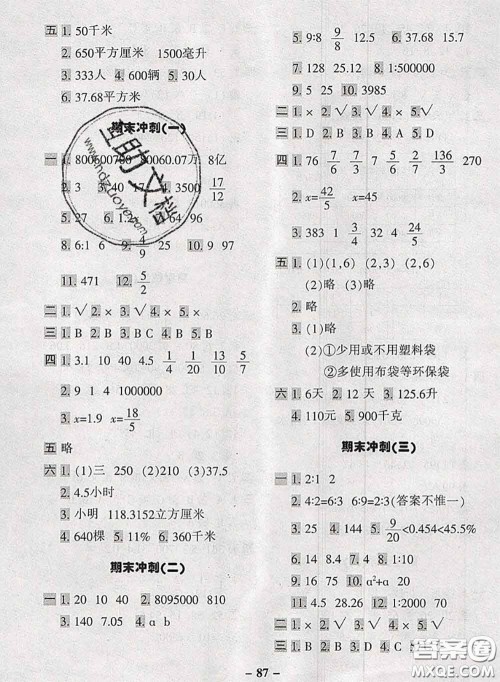 五 1. 50千米
2. 650平方厘米 1500毫升
3. 333人 4. 600辆 5. 30人
6. 37.68平方米
期末冲刺(一)
一 1. 800600700 80060.07万 8亿
2. 3 40 4. 3500 17/12
5. 27 64 96
8. 6:1 6 9. 4/9 10. 65 25
11. 471 12. 5/2
二 1. √ 2. × 3. √ 4. × 5. √
三 1. B 2. B 3. B C 4. B 5. B
四 1. 3.1 10 40 4.5 1/4 1/20 13/10 6/49
2. 9 1 4 1000000
3. x=1.9 x=18/5
五 略
六 1. (1)三 250 (2)210 (3)37.5
2. 4.5小时
3. 小明 118.3152立方厘米
4. 640棵 5. 11% 6. 360千米
期末冲刺(二)
一 1. 20 10 40 2. 8095000 810
3. 140 7.05 4. a b
5. 9:8 9/8 12.5 6. 37.68
7. 128 25.12 8. 1:500000
9. 5 25 10. 3985
二 1. × 2. √ 3. √ 4. × 5. √
三 1. D 2. B 3. D 4. A 5. B
四 1. 76 7/6 7/3 4/7 2/7 136/3 270
2. x=42/5 x=45
3. 383 1 3/4 32 4 24/5
五 1. (1)(1,6) (2)(3,6)
(2)略 (3)略
2. 略
3. (1)略
(2)①少用或不用塑料袋
②多使用布袋等环保袋
六 1. 6天 2. 12天 3. 125.6升
4. 110元 5. 900千克
期末冲刺(三)
一 1. 2:1 2
2. 4:2=6:3 6:9=2:3(答案不惟一)
3. 25 4. 144 5. 9/20<0.454<45.5%
6. 14 7. 4 8. 1:10
9. 16 94 10. a²+a
11. 4.5 28.26 12. 1:2000 70
二 1. × 2. √ 3. × 4. √ 5. ×
三 1. D 2. B 3. A 4. B 5. B
- 87 -
答案圈
MXQE.COM